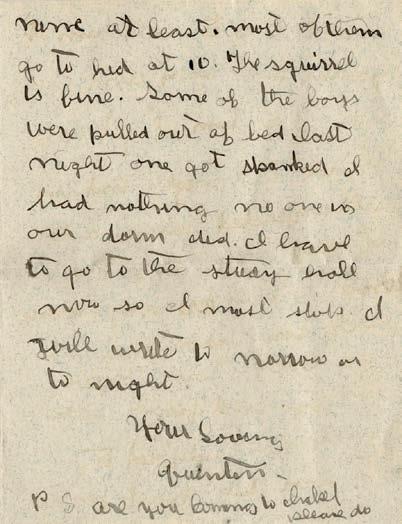 nine at least. most of them
go to bed at 10. The squirrel
is fine. Some of the boys
were pulled out of bed last
night one got spanked I
had nothing no one in
our dorm did. I have
to go to the study hall
now so I must stop. I
will write to morrow or
to night.
Your Loving
Quentin.
P S. are you coming to
please do